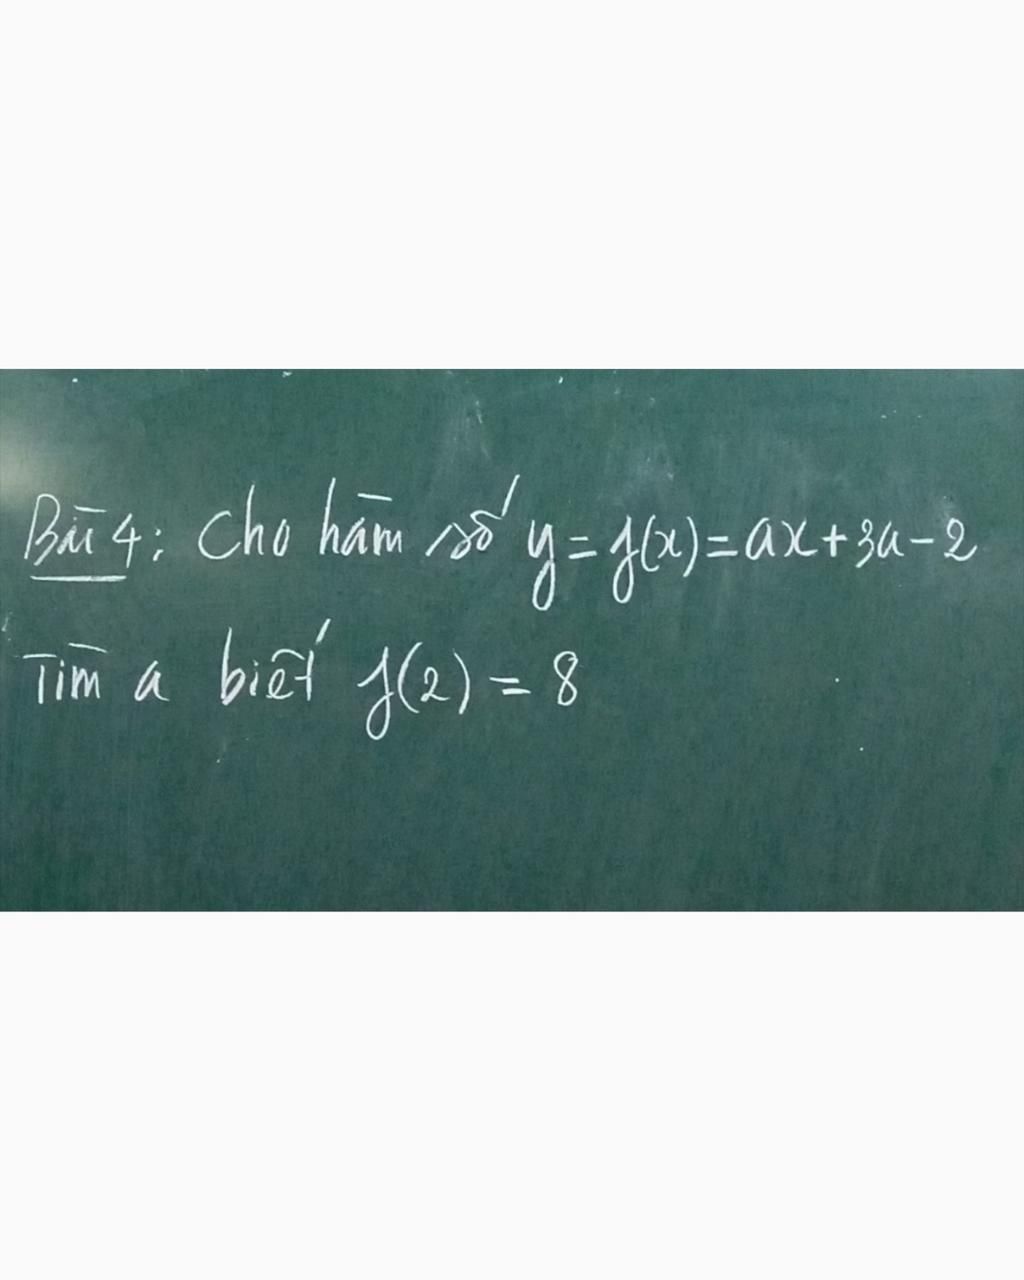 Bài 4: Cho hàm số y = f(x) = ax + 3a - 2
Tìm a biết f(2) = 8